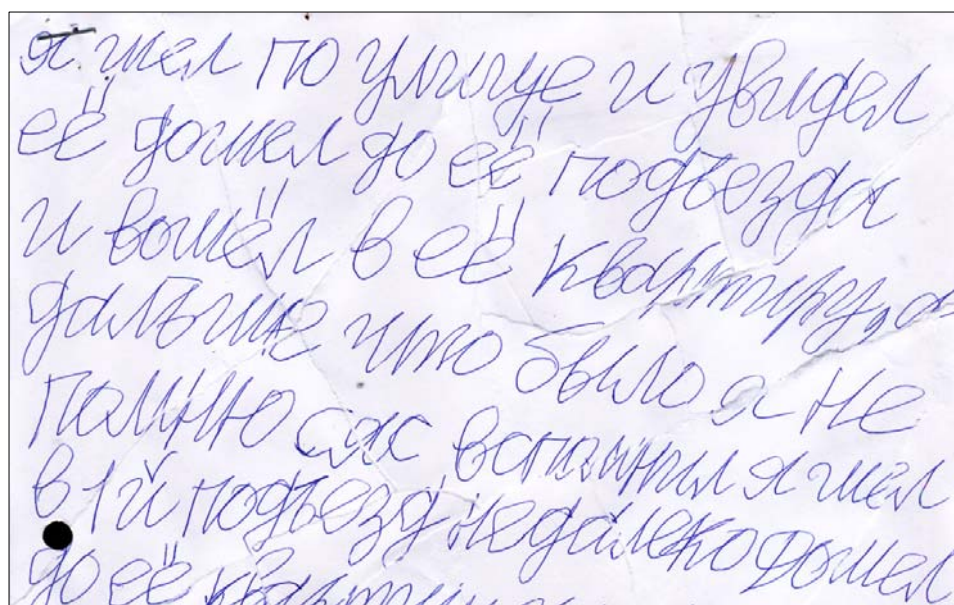 я шел по улице и увидел
её дошел до её подъезда
и вошёл в её квартиру, а
дальше что было я не
помню сяс вспомнил я шел
в 1й подъезд, недалеко дошел
до её